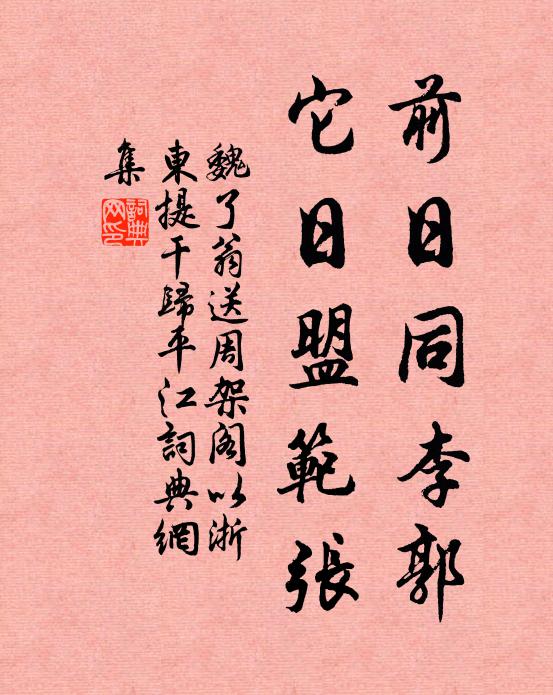 前日同李郭
它日盟範張
魏了翁送周架阁以浙
東提干歸平江詞典網
集
詞典
网印